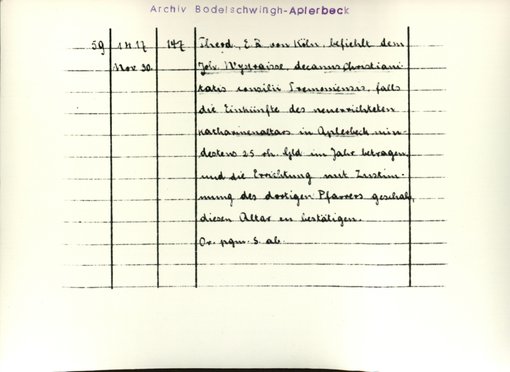 Archiv Bodelschwingh-Aplerbeck
59 1417 147 Theod., E.B. von Köln, befiehlt dem
Nov 30. Joh. Wystrasse, decanus Christiani-
tatis consilii Tremoniensis, falls
die Einkünfte des neuerrichteten
Katharinenaltars in Aplerbeck min-
destens 25 rh. Gld im Jahr betragen
und die Errichtung mit Zustim-
mung des dortigen Pfarrers geschah,
diesen Altar zu bestätigen.
Or. pgm. S. ab.